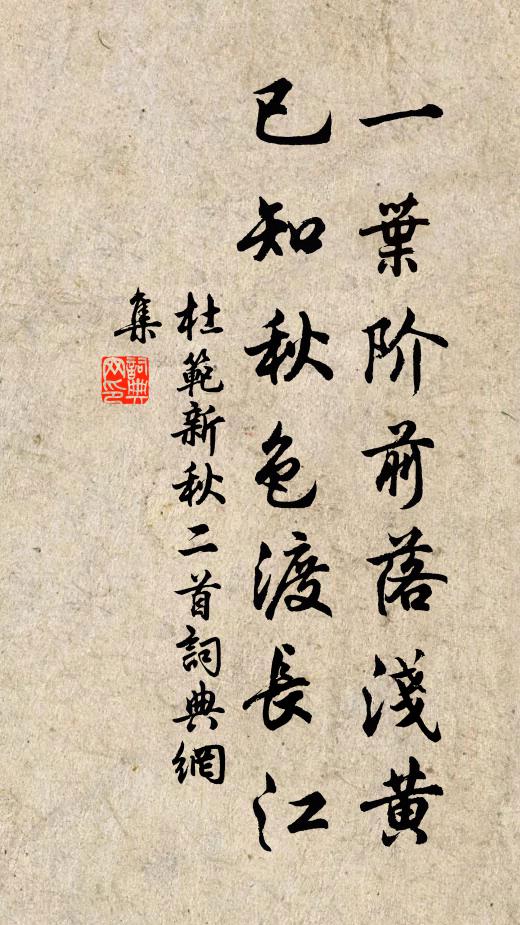 一葉阶前落淺黄
已知秋色渡長江
杜範新秋二首詞典網
集
詞典网印